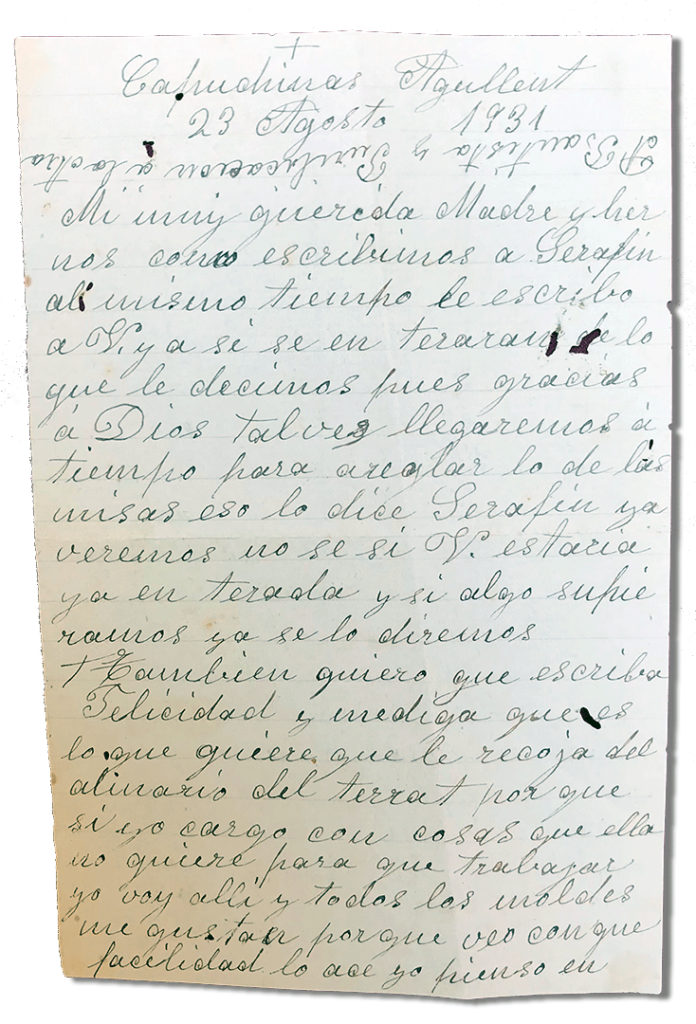 Capuchinas Agullent
23 Agosto 1931
A Bautista y Purificacion a la otra
Mi muy querida Madre y her
nos como escribimos a Serafin
al mismo tiempo le escribo
a V. y a si se en teraran de lo
que le decimos pues gracias
á Dios tal vez llegaremos á
tiempo para areglar lo de las
misas eso lo dice Serafin ya
veremos no se si V. estaria
ya en terada y si algo supie
ramos ya se lo diremos
† Tambien quiero que escriba
Felicidad y mediga que es
lo que quiere que le recoja del
almario del terrat por que
si yo cargo con cosas que ella
no quiere para que trabajar
yo voy alli y todos los moldes
me gustan porque veo con que
facilidad lo ace yo pienso en